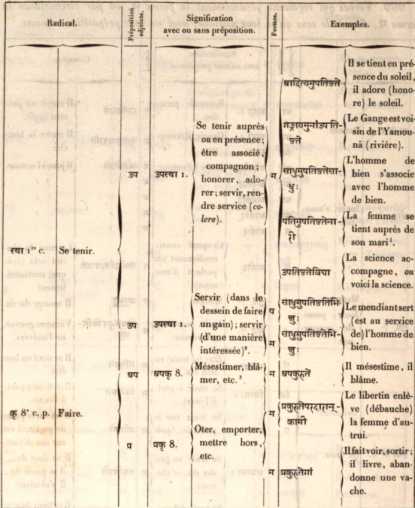 Radical.
Préposition adjointe.
Signification
avec ou sans préposition.
Formes.
Exemples.
स्था 1re c. Se tenir.
उप
उपस्था 1.
Se tenir auprès
ou en présence;
être associé,
compagnon;
honorer, ado-
rer; servir, ren-
dre service (co-
lere).
म
आदित्यमुपतिष्ठते
Il se tient en pré-
sence du soleil,
il adore (hono-
re) le soleil.
Le Gange est voi-
sin de l'Yamou-
nâ (rivière).
L'homme de
bien s'associe
avec l'homme
de bien.
La femme se
tient auprès de
son mari⁴.
उपतिष्ठतेविद्या
La science ac-
compagne, ou
voici la science.
उप
उपस्था 1.
Servir (dans le
dessein de faire
un gain); servir
(d'une manière
intéressée)².
प
म
Le mendiant sert
(est au service
de) l'homme de
bien.
कृ 8e c. p. Faire.
अप
अपकृ 8.
Mésestimer, blâ-
mer, etc.³
म
अपकुरुते
Il mésestime, il
blâme.
प्र
प्रकृ 8.
Oter, emporter,
mettre hors,
etc.
म
Le libertin enlè-
ve (débauche)
la femme d'au-
trui.
म
Il fait voir, sortir;
il livre, aban-
donne une va-
che.